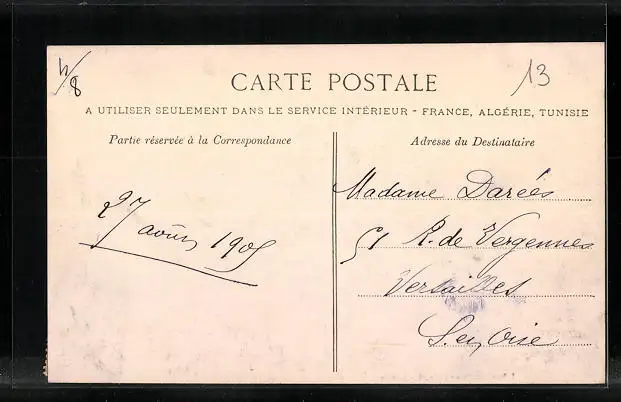 4/8
13
CARTE POSTALE
A UTILISER SEULEMENT DANS LE SERVICE INTÉRIEUR - FRANCE, ALGÉRIE, TUNISIE
Partie réservée à la Correspondance
Adresse du Destinataire
27
août 1905
Madame Darées
51 R. de Vergennes
Versailles
S. en Oise